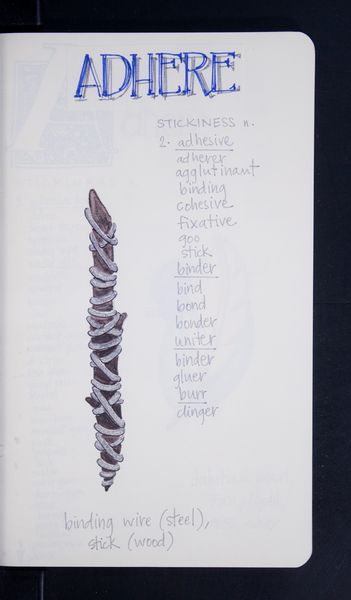 ADHERE
STICKINESS n.
2. adhesive
adherer
agglutinant
binding
cohesive
fixative
goo
stick
binder
bind
bond
bonder
uniter
binder
gluer
burr
clinger
binding wire (steel),
stick (wood)